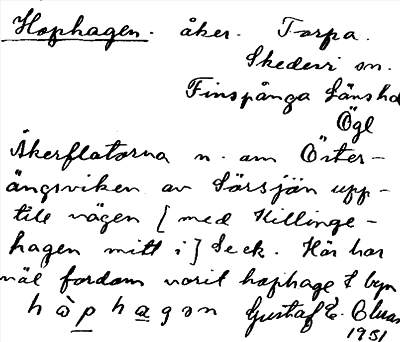 Hophagen. åker. Torpa.
Skedevi sn.
Finspånga Länshd
Ögl
Åkerflatorna n. om Öster-
ängsviken av Sörsjön upp-
till vägen [med Killinge-
hagen mitt i] Seck. Här har
väl fordom varit hophage f byn
hòphagən Gustaf E.
1931